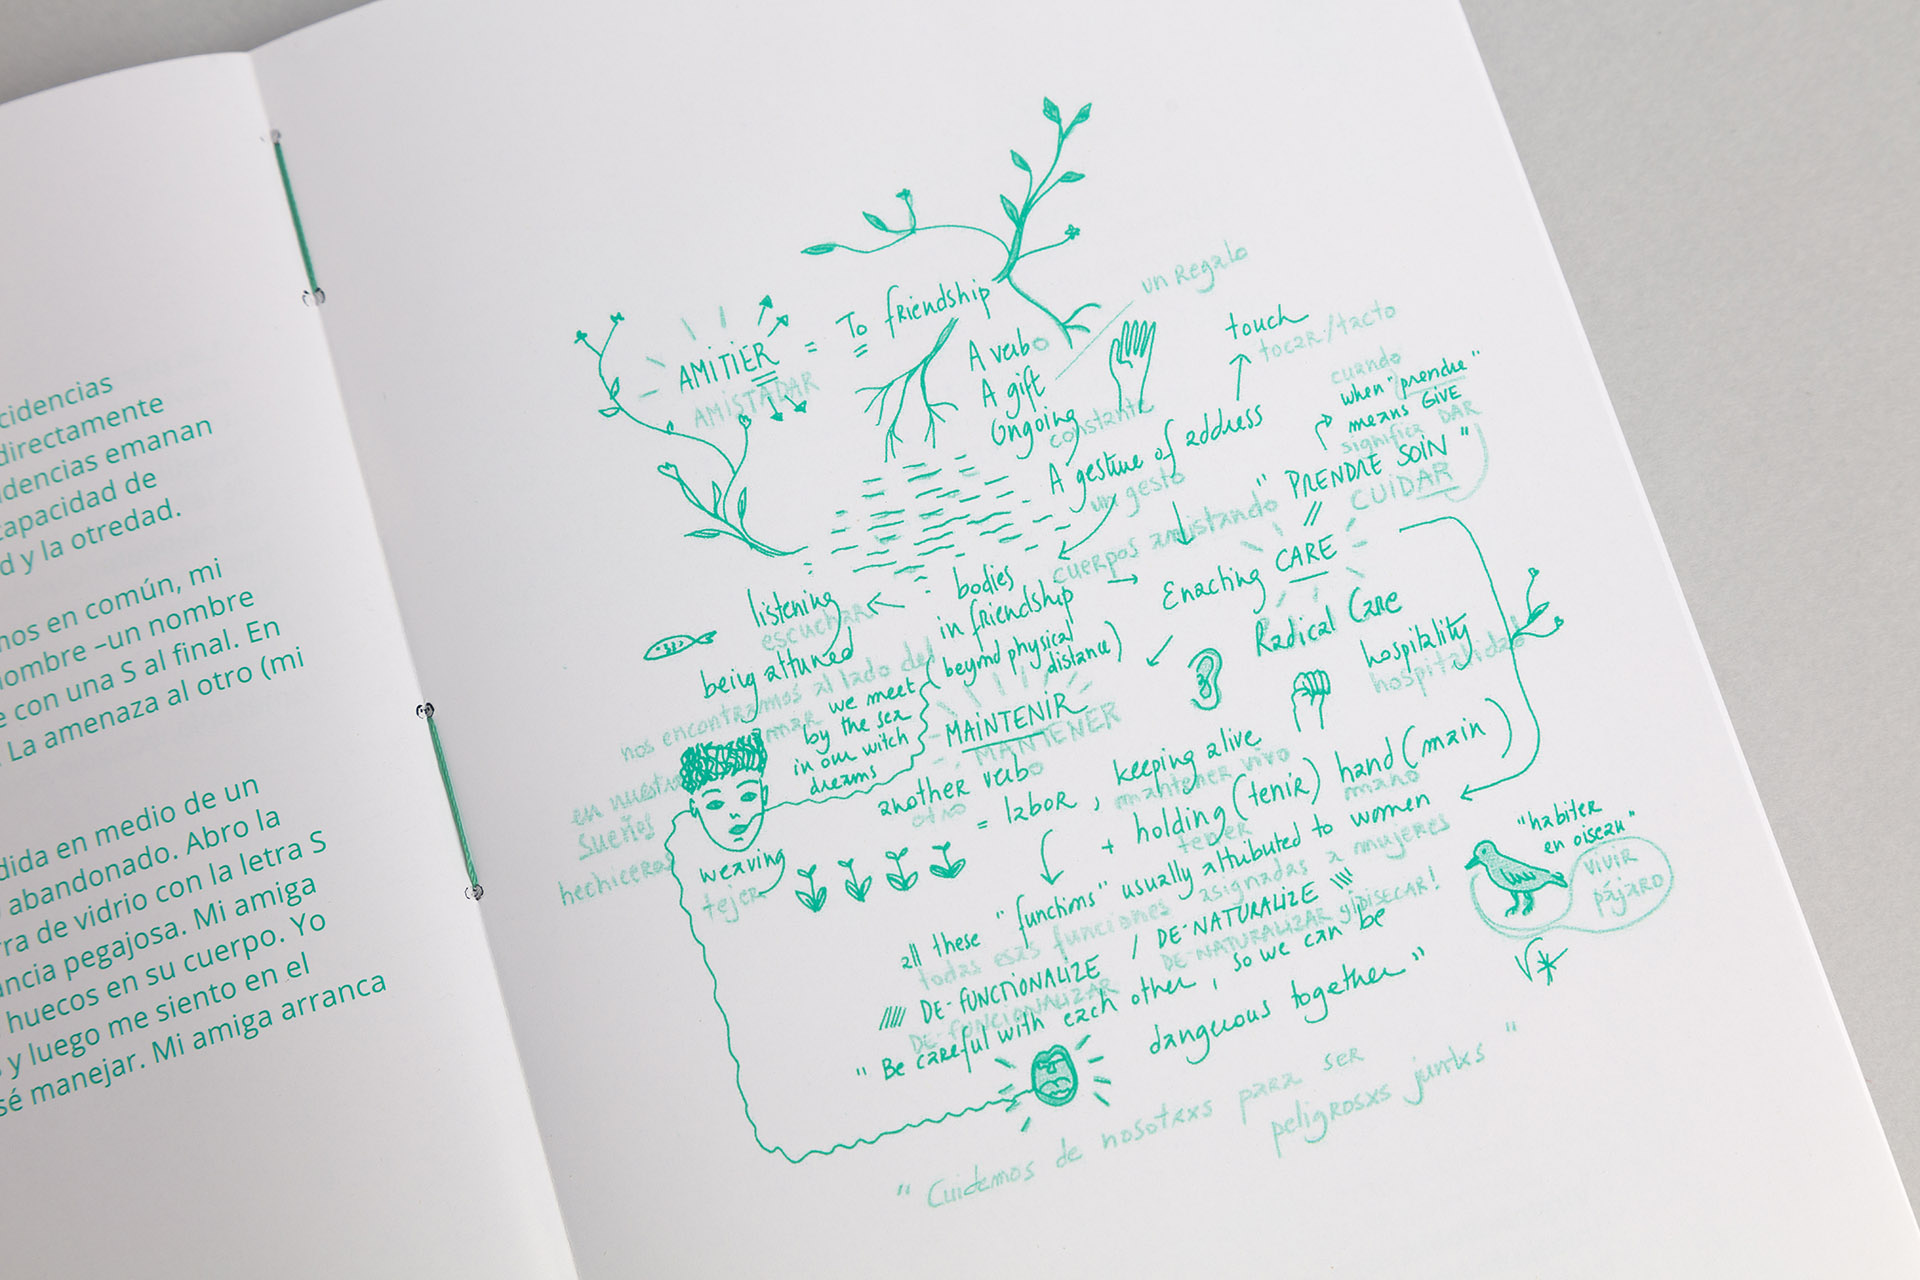 cidencias
directamente
dencias emanan
capacidad de
d y la otredad.
nos en común, mi
nombre –un nombre
e con una S al final. En
. La amenaza al otro (mi
dida en medio de un
abandonado. Abro la
rra de vidrio con la letra S
ncia pegajosa. Mi amiga
huecos en su cuerpo. Yo
s y luego me siento en el
sé manejar. Mi amiga arranca
AMITIER = To friendship
AMISTADAR
A verb
A gift
un Regalo
Ongoing
constante
touch
tocar/tacto
A gesture of address
un gesto
cuando
when "prendre"
means GIVE
significa DAR
"PRENDRE SOIN"
CUIDAR
listening
escuchar
being attuned
bodies
in friendship
(beyond physical
distance)
cuerpos amistando
Enacting CARE
Radical Care
hospitality
hospitalidad
nos encontramos al lado del
mar
en nuestros
sueños
hechiceros
we meet
by the sea
in our witch
dreams
MAINTENIR
MANTENER
another verb
otro
= labor, keeping alive
mantener vivo
+ holding (tenir) hand (main)
tener mano
weaving
tejer
all these "functions" usually attributed to women
todas esas funciones asignadas a mujeres
DE-FUNCTIONALIZE / DE-NATURALIZE
DE-FUNCIONALIZAR DE-NATURALIZAR
"habiter
en oiseau"
vivir
pájaro
"Be careful with each other, so we can be
dangerous together"
"Cuidemos de nosotrxs para ser
peligrosxs juntxs"